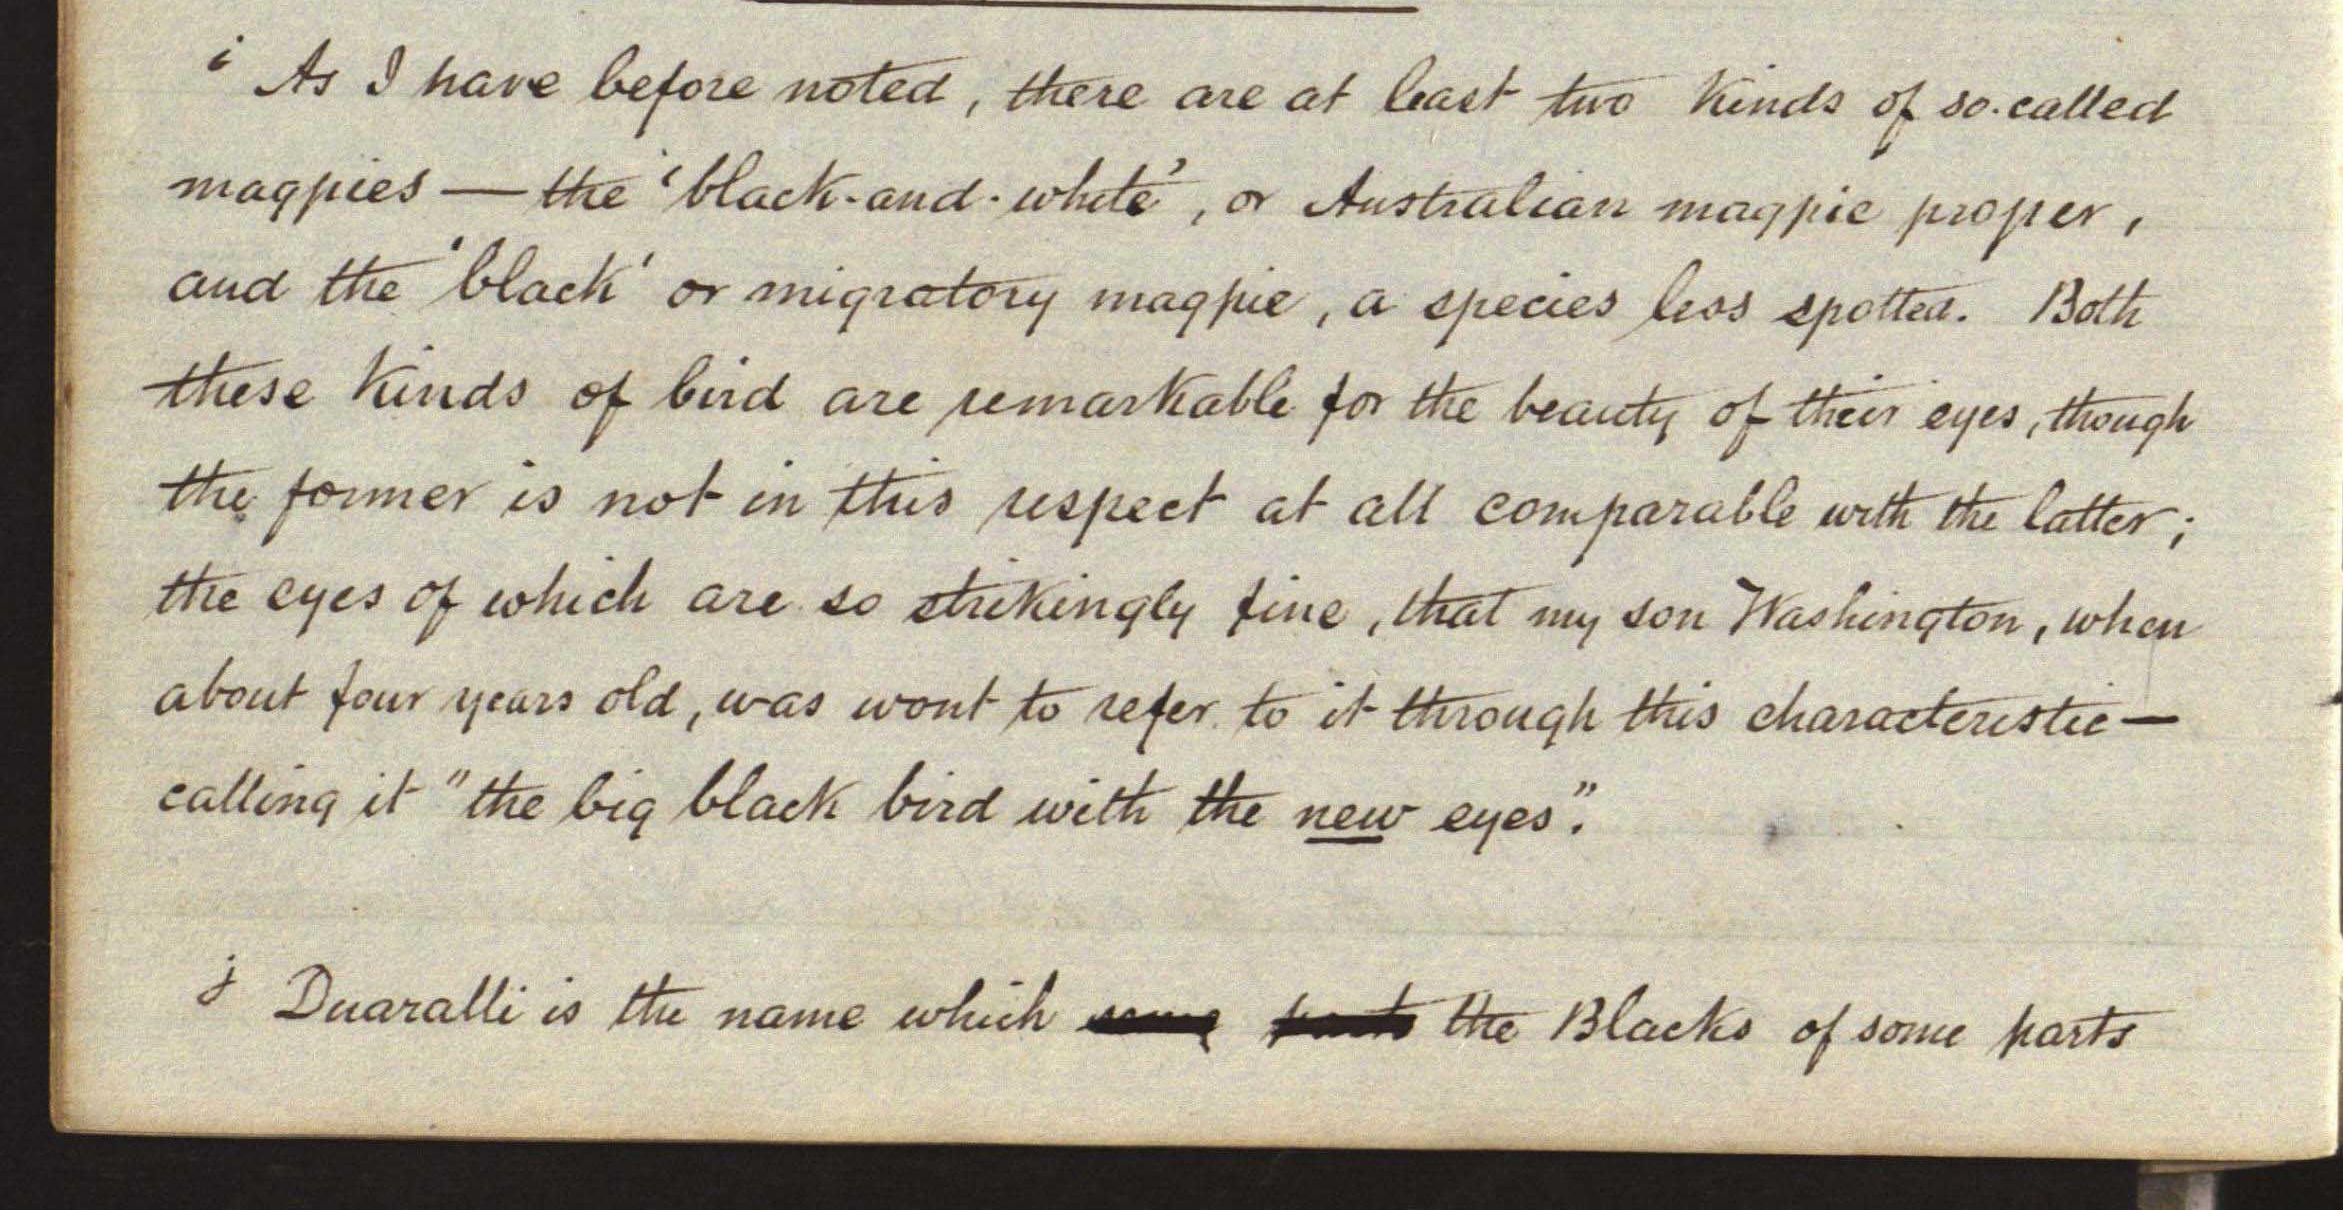 i As I have before noted, there are at least two kinds of so-called
magpies — the 'black-and-white', or Australian magpie proper,
and the 'black' or migratory magpie, a species less spotted. Both
these kinds of bird are remarkable for the beauty of their eyes, though
the former is not in this respect at all comparable with the latter;
the eyes of which are so strikingly fine, that my son Washington, when
about four years old, was wont to refer to it through this characteristic —
calling it "the big black bird with the new eyes".
j Duaralli is the name which some parts the Blacks of some parts